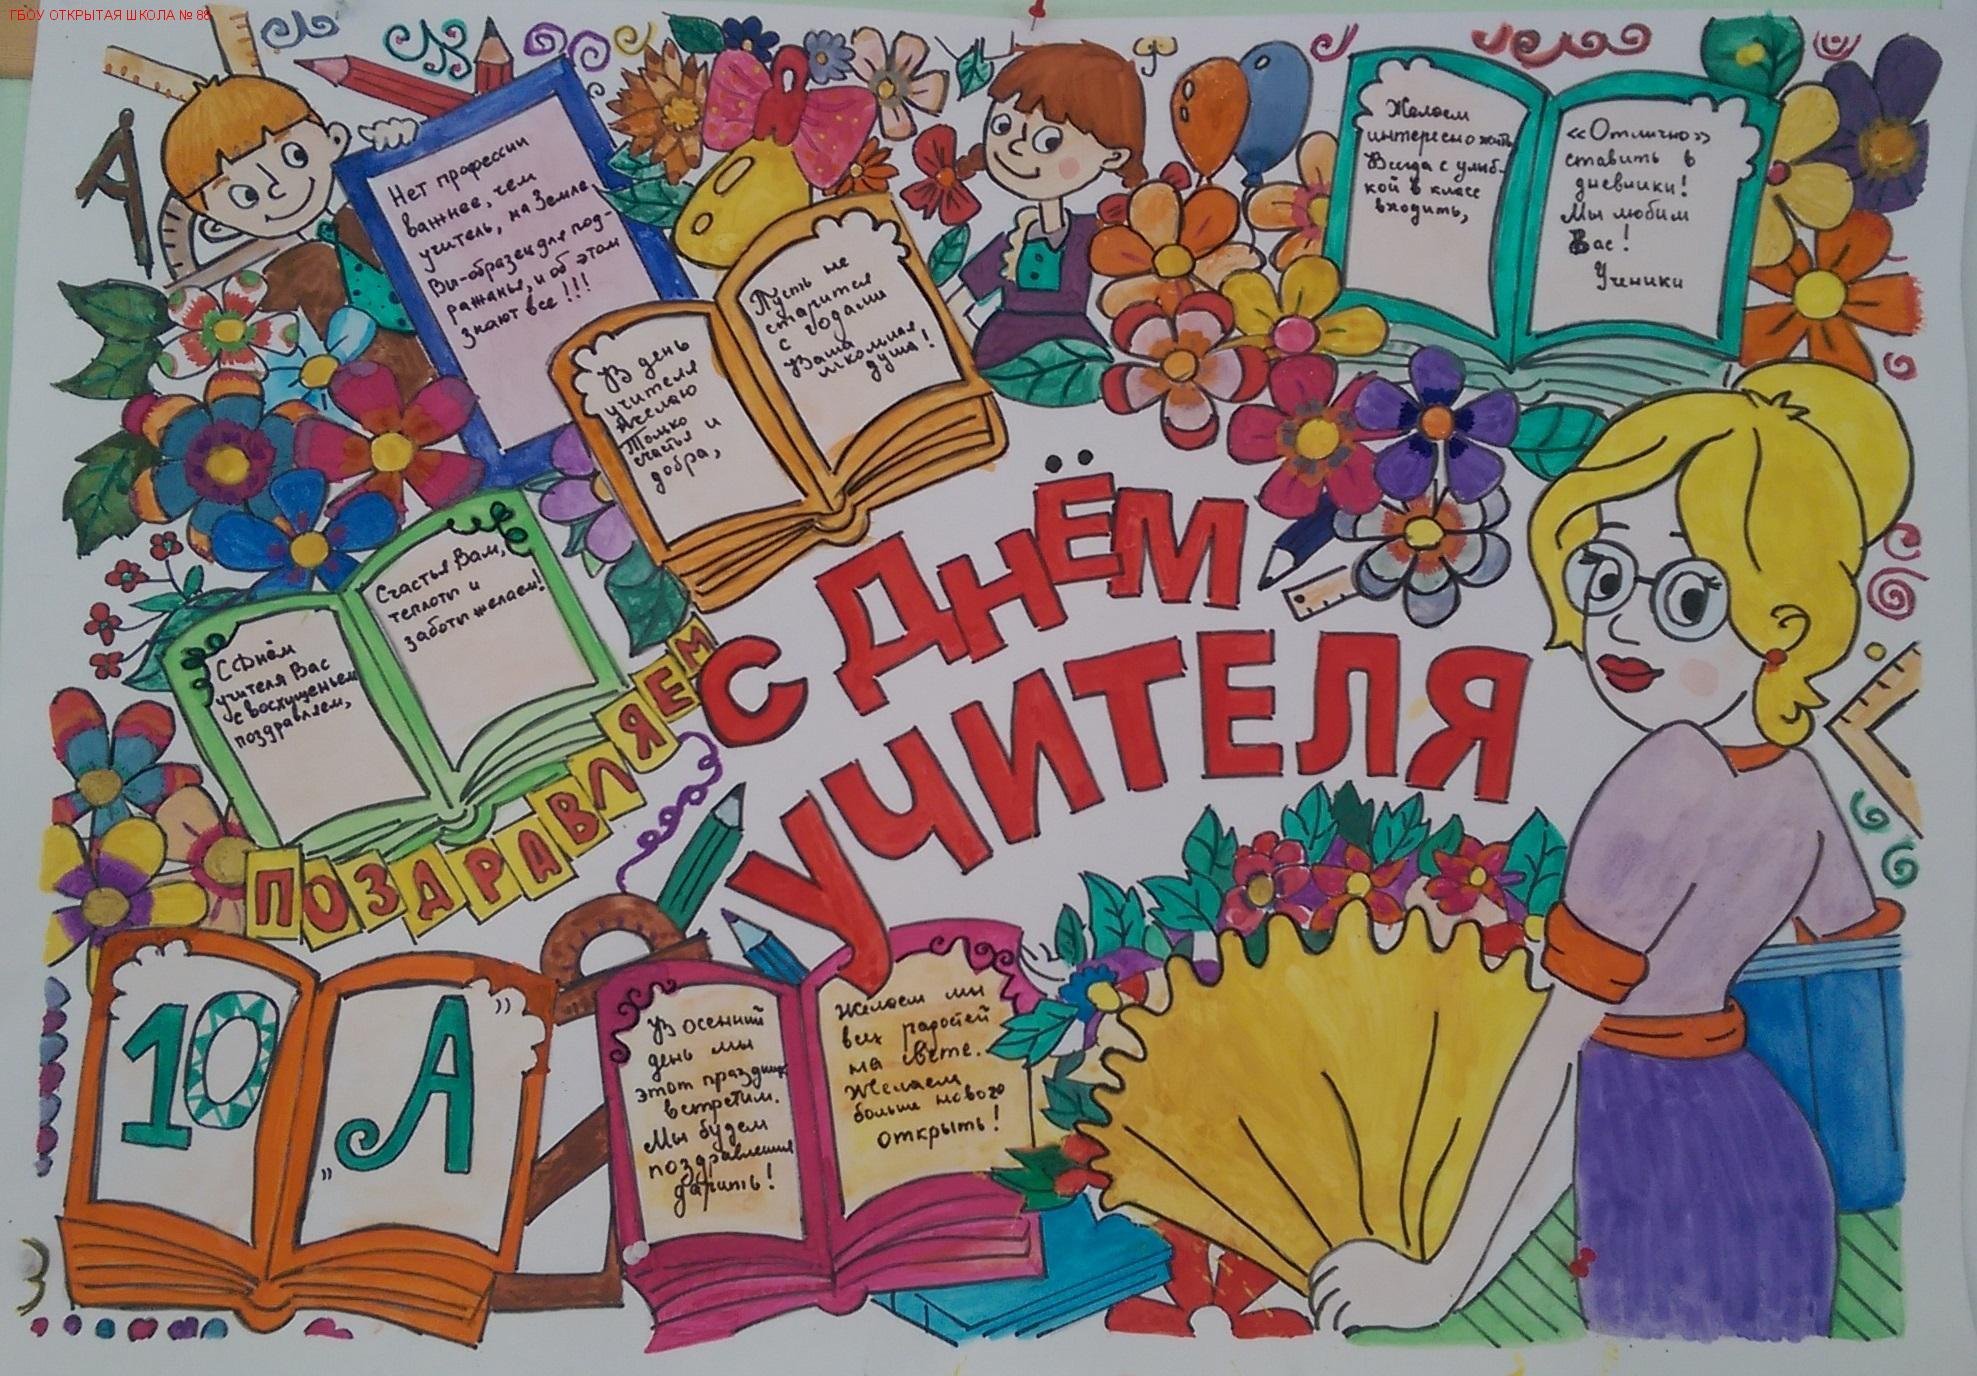 ГБОУ ОТКРЫТАЯ ШКОЛА № 88
Нет профессии
важнее, чем
учитель, на Земле,
Вы-образец для под-
ражанья, и об этом
знают все!!!
В день
учителя
желаю
Только
счастья и
добра,
Пусть не
старится
с годами
Ваша
школьная
душа!
Желаем
интересно жить
Всегда с улыб-
кой в класс
входить,
«Отлично»
ставить в
дневники!
Мы любим
Вас!
Ученики
С Днём
учителя Вас
с восхищеньем
поздравляем,
Счастья Вам,
теплоты и
заботы желаем!
ПОЗДРАВЛЯЕМ
С ДНЁМ
УЧИТЕЛЯ
10
„А”
В осенний
день мы
этот праздник
встретим.
Мы будем
поздравления
дарить!
Желаем мы
всех радостей
на свете.
Желаем
больше нового
открыть!